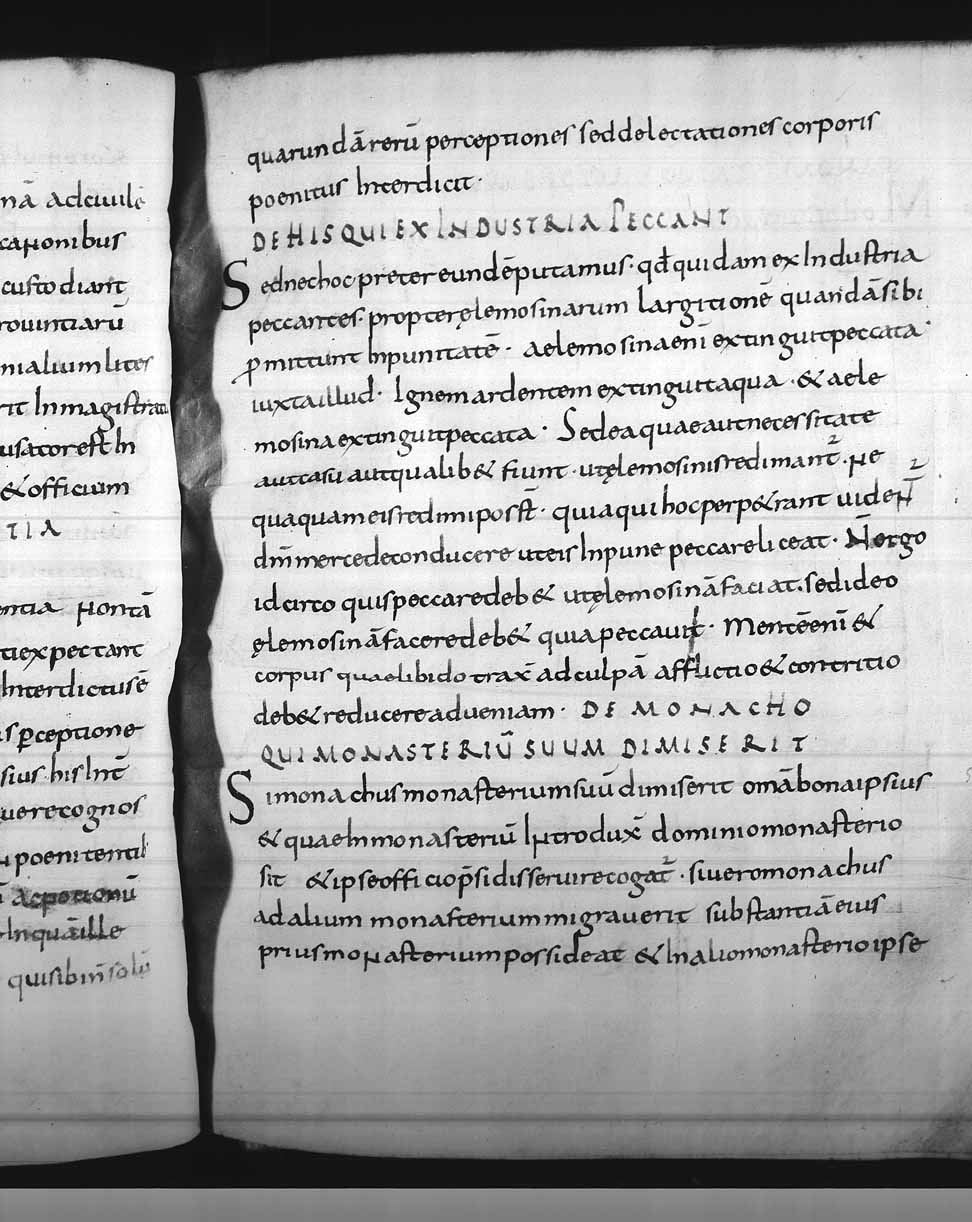 nā adciuile
custodiant
rouintiarū
nialium lites
rit Inmagistratu
usatorest In
&officium
TIA
entia Nontā
tiexpectant
Interdictusē
is p̄ceptione
sius his Int̄
uerecognos
poenitentib
acpotionū
Inquā ille
quisibiīn solū
quarundā rerū perceptiones sed delectationes corporis
poenitus Interdicit·
DE HIS QUI EX INDUSTRIA PECCANT
Sed nechoc pretereundē putamus· qđ quidam ex Industria
peccantes· propter ęlemosinarum largitionē quandā sibi
ꝑmittunt Inpunitatē· aelemosina enī extinguit peccata·
iuxta illud· Ignem ardentem extinguit aqua· & aele
mosina extinguit peccata· Sed ea quae aut necessitate
aut casu aut qualib& fiunt· ut ęlemosinis redimant̄· Ne
quaquam eis redimi posst̄· quia qui hoc perp&rant uident̄
dn̄m mercede conducere ut eis Inpune peccare liceat· N̄ ergo
idcirco quis peccare deb& ut ęlemosinā faciat· sed ideo
ęlemosinā facere deb& quia peccauit· Mentē enī &
corpus quae libido trax̄ ad culpā afflictio & contritio
deb& reducere ad ueniam· DE MONACHO
QUI MONASTERIŪ SUUM DIMISERIT
Si monachus monasterium suū dimiserit omā bona ipsius
& quae In monasteriū Introdux̄ dominio monasterio
sit & ipse officio p̄sidis seruire cogat̄· si uero monachus
ad alium monasterium migrauerit substantiā eius
prius monasterium possideat & In alio monasterio ipse